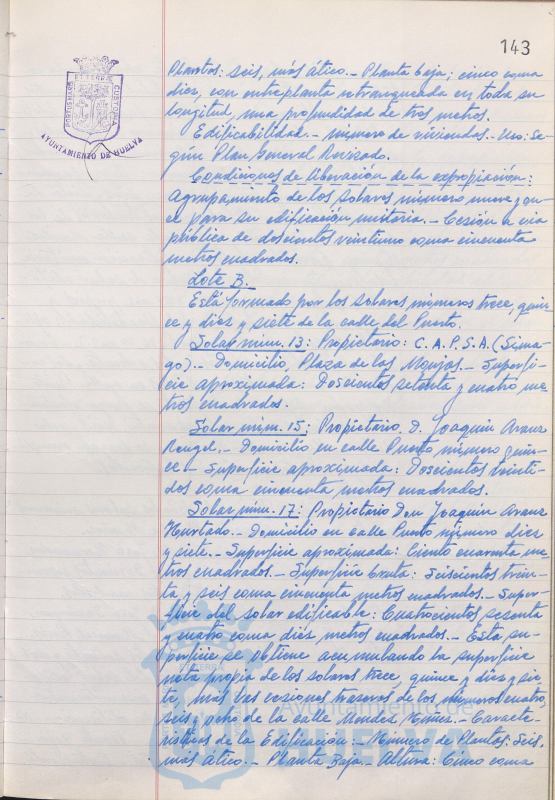 143
PORTUS MARIS ET TERRÆ CUSTODIA
AYUNTAMIENTO DE HUELVA
Plantas: seis, más ático.- Planta baja: cinco coma
diez, con entreplanta retranqueada en toda su
longitud, una profundidad de tres metros.
Edificabilidad.- número de viviendas.- Uso: Se-
gún Plan General Revisado.
Condiciones de liberación de la expropiación:
Agrupamiento de los solares número nueve y on-
ce para su edificación unitaria.- Cesión a vía
pública de doscientos veintiuno coma cincuenta
metros cuadrados.
Lote B.
Está formado por los solares números trece, quin-
ce y diez y siete de la calle del Puerto.
Solar núm. 13: Propietario: C.A.P.S.A. (Sima-
go).- Domicilio, Plaza de las Monjas.- Superfi-
cie aproximada: Doscientos setenta y cuatro me-
tros cuadrados.
Solar núm. 15: Propietario, D. Joaquín Arauz
Rengel.- Domicilio en calle Puerto número quin-
ce.- Superficie aproximada: Doscientos veinti-
dos coma cincuenta metros cuadrados.
Solar núm. 17: Propietario Don Joaquín Arauz
Hurtado.- Domicilio en calle Puerto número diez
y siete.- Superficie aproximada: Ciento cuarenta me-
tros cuadrados.- Superficie bruta: Seiscientos trein-
ta y seis coma cincuenta metros cuadrados.- Super-
ficie del solar edificable: Cuatrocientos sesenta
y cuatro coma diez metros cuadrados.- Esta su-
perficie se obtiene acumulando la superficie
neta propia de los solares trece, quince y diez y sie-
te, más las cesiones traseras de los números cuatro,
seis y ocho de la calle Mendez Nuñez.- Caracte-
rísticas de la Edificación:- Número de Plantas: Seis,
más ático.- Planta Baja.- Altura: Cinco coma
Ayuntamiento de
HUELVA